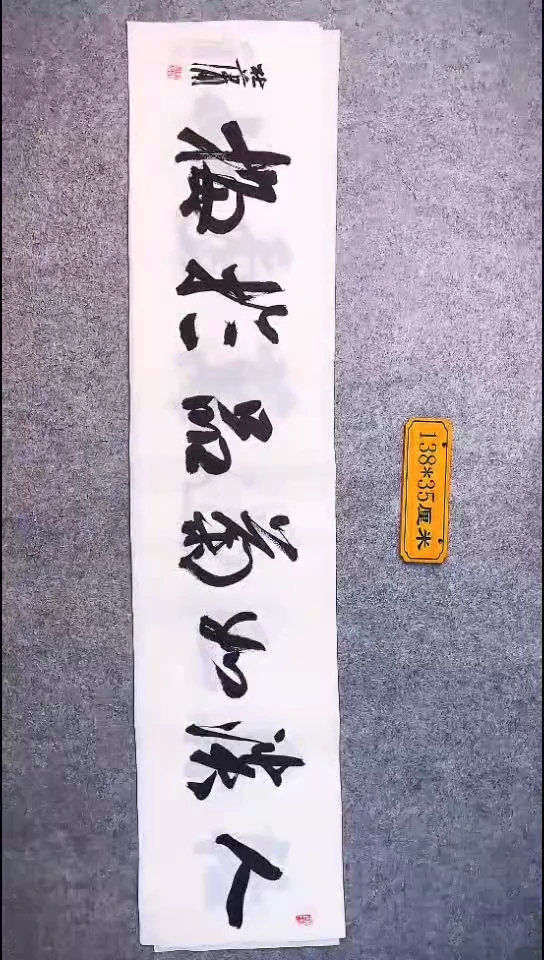 人淡如菊品於梅
138*35厘米